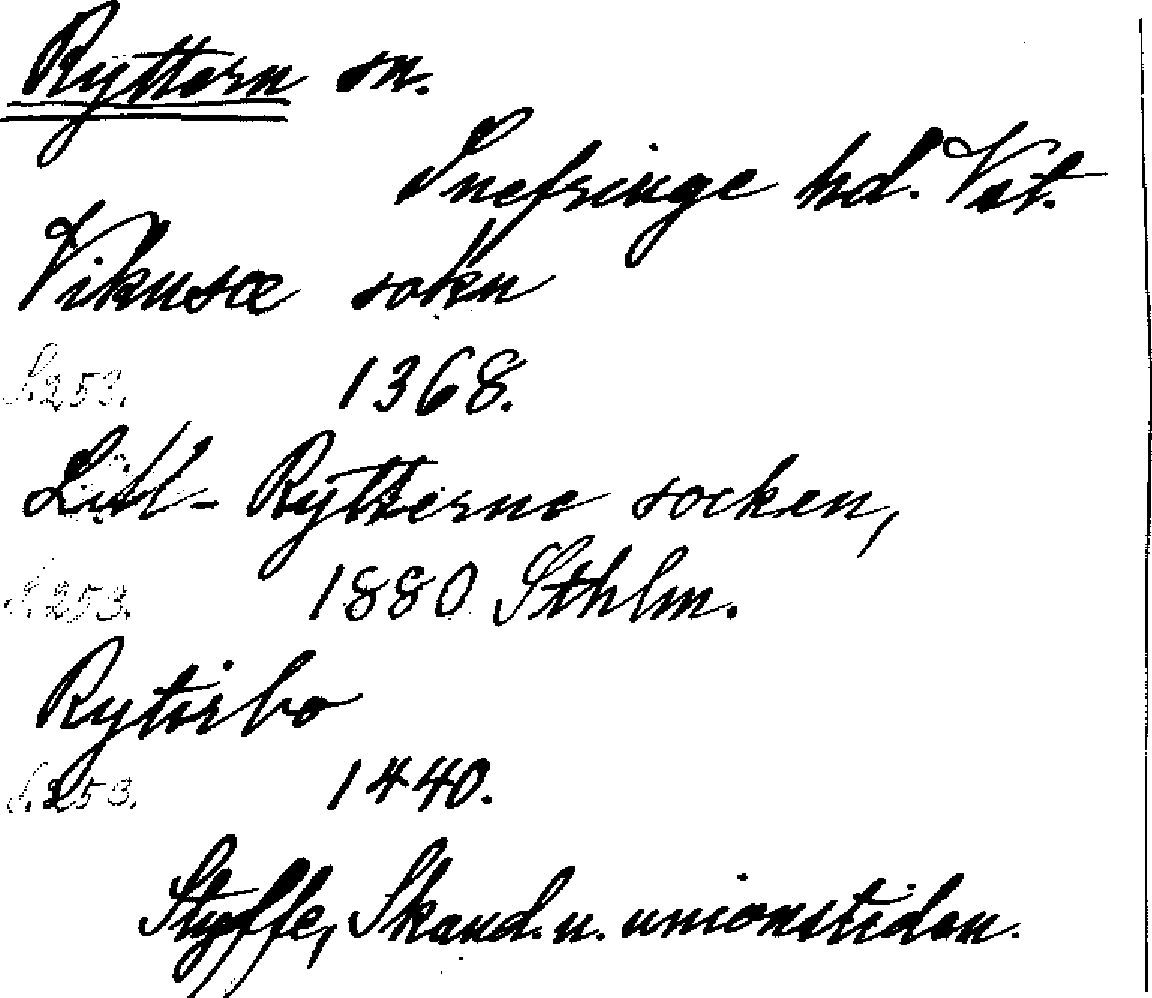 Ryttern sn.
Snefringe hd. Vst.
Vikusœ sokn
S.253. 1368.
Litl-Rytterne socken,
S.253. 1880 Sthlm.
Rytirbo
S.253. 1440.
Styffe, Skand. u. unionstiden.